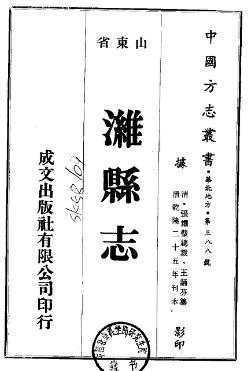 中國方志叢書•華北地方•第三八八號
據
清•張耀璧總裁•王誦芬纂
清乾隆二十五年刊本
影印
山東省
濰縣志
成文出版社有限公司印行